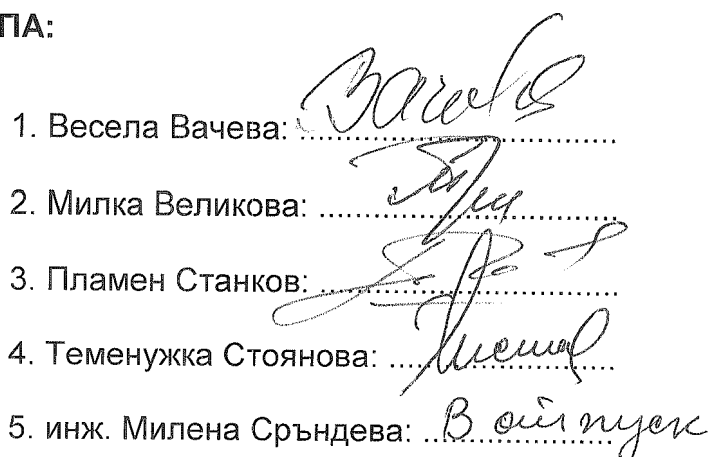 ПА:
1. Весела Вачева: 
2. Милка Великова: 
3. Пламен Станков: 
4. Теменужка Стоянова: 
5. инж. Милена Сръндева: В отпуск